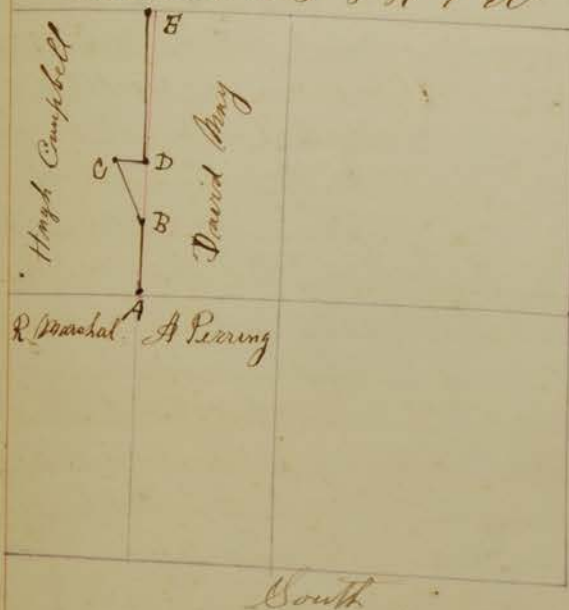 E
Hugh Campbell
David May
C
D
B
A
R. Marshal
A Perring
South